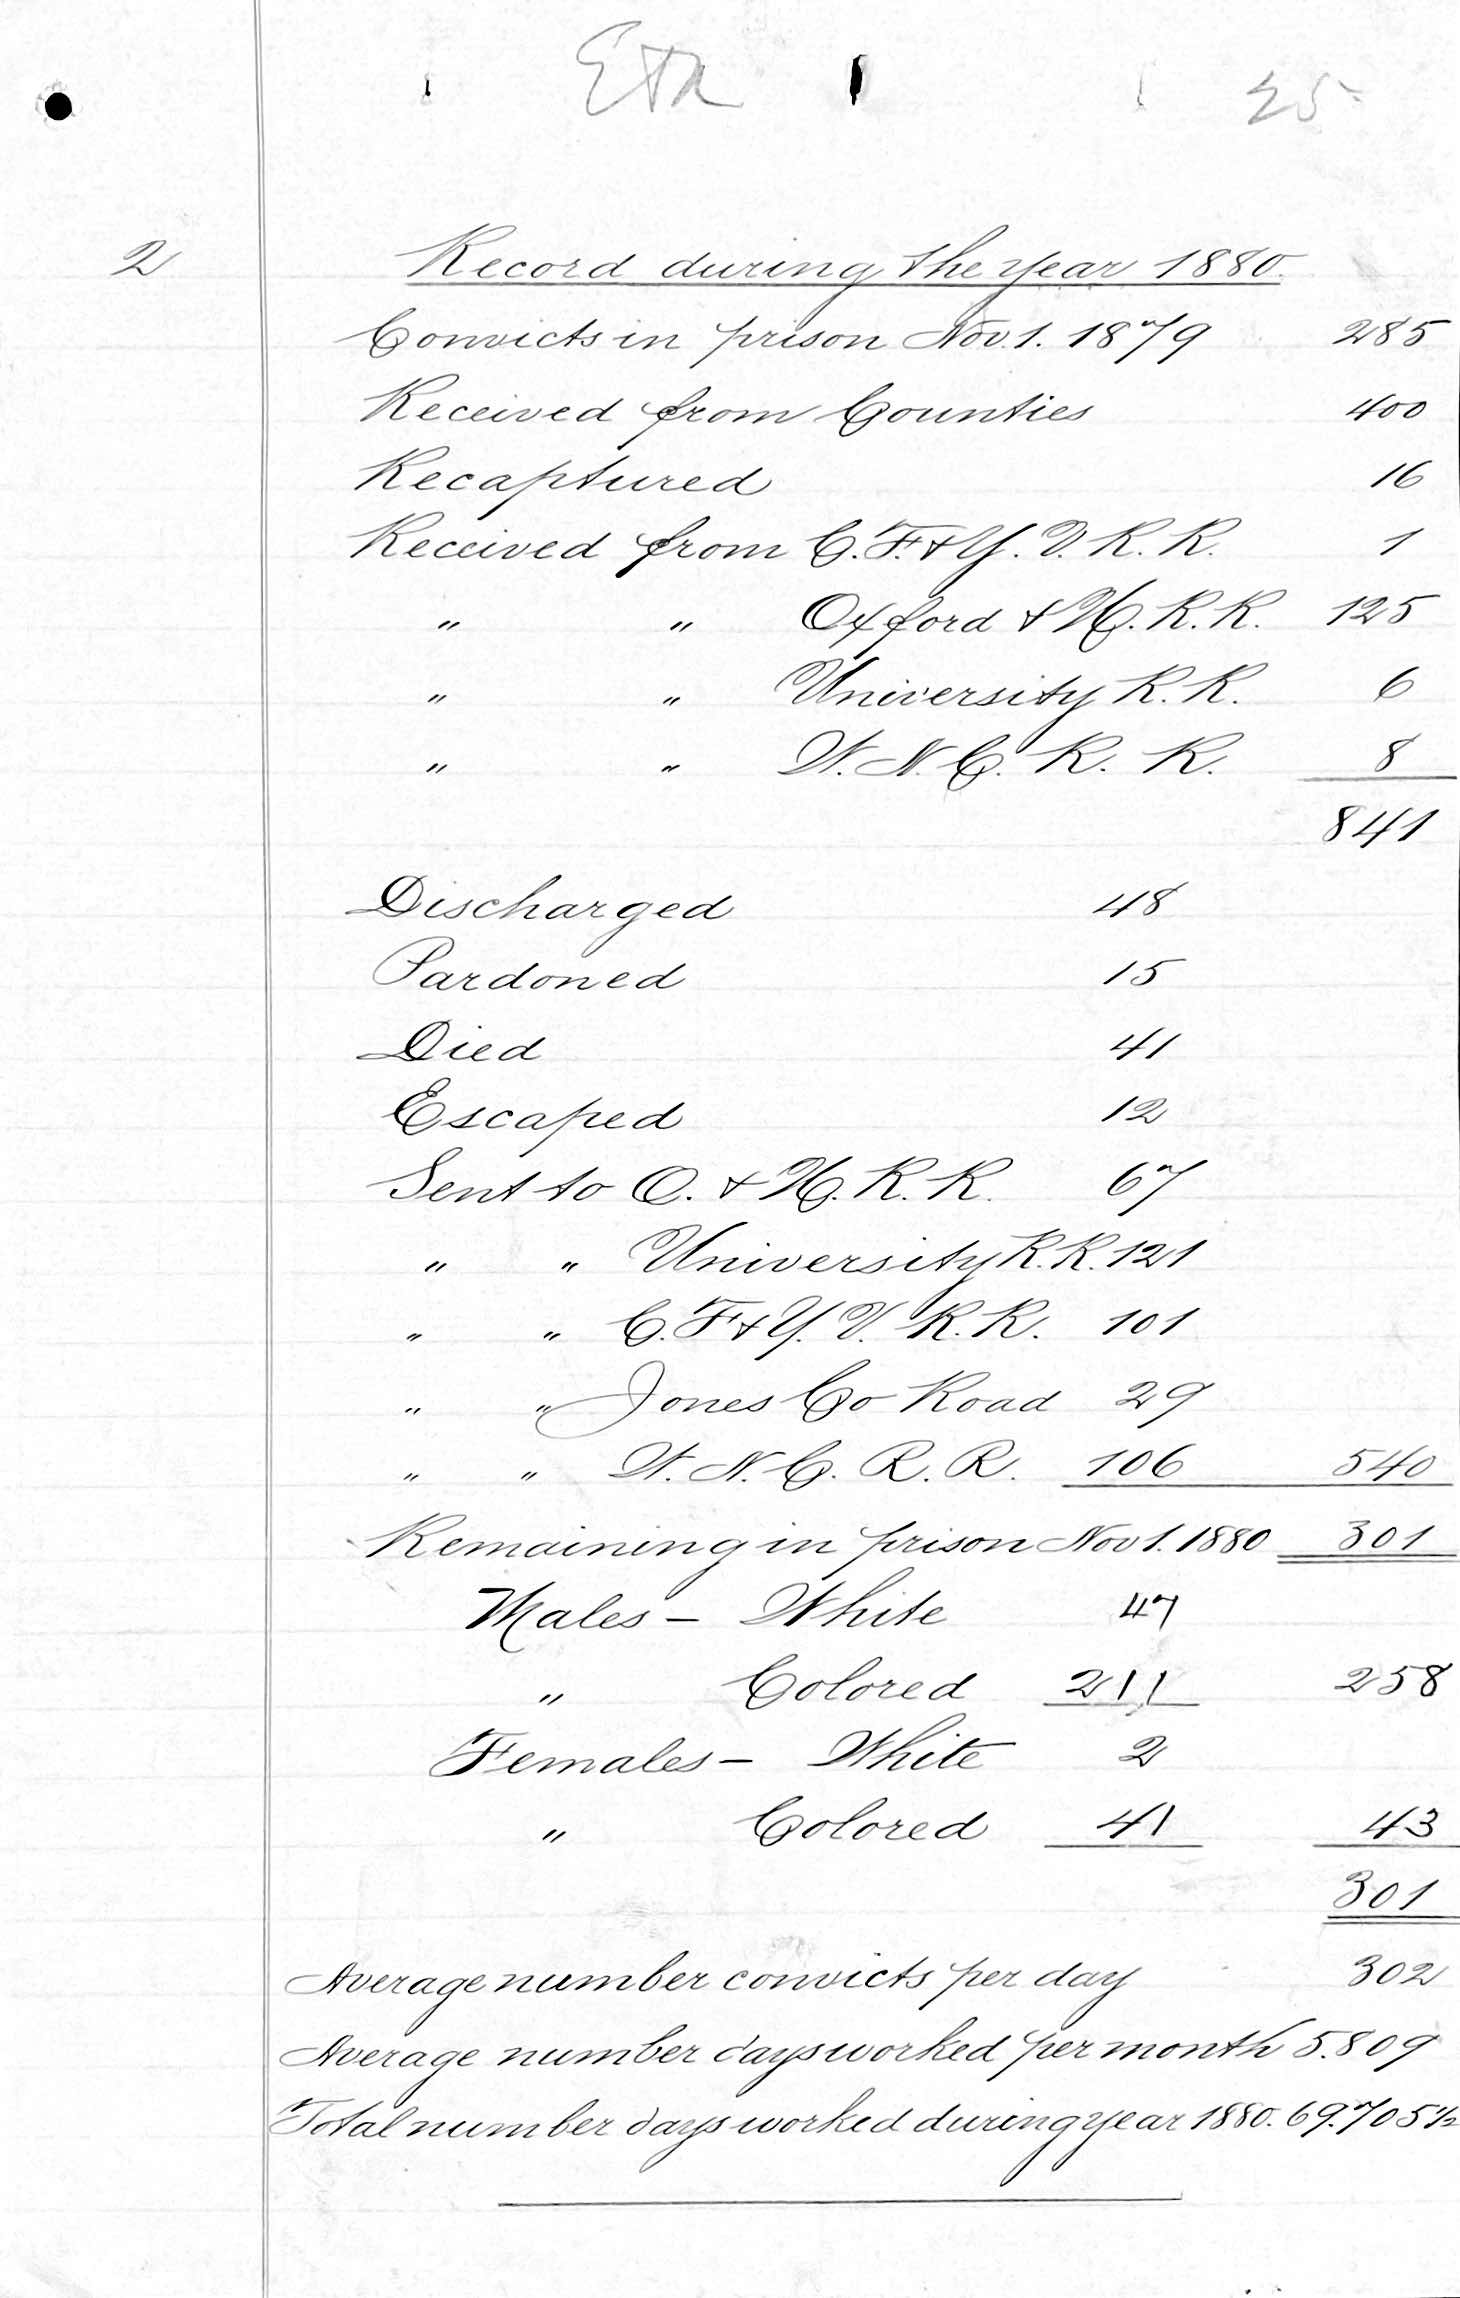 25
2
Record during the year 1880.
Convicts in prison Nov. 1. 1879 285
Received from Counties 400
Recaptured 16
Received from C. F. & Y. V. R. R. 1
" " Oxford & H. R. R. 125
" " University R. R. 6
" " W. N. C. R. R. 8
841
Discharged 48
Pardoned 15
Died 41
Escaped 12
Sent to O. & H. R. R. 67
" " University R. R. 121
" " C. F & Y. V. R. R. 101
" " Jones Co Road 29
" " W. N. C. R. R. 106 540
Remaining in prison Nov 1. 1880 301
Males - White 47
" Colored 211 258
Females - White 2
" Colored 41 43
301
Average number convicts per day 302
Average number days worked per month 5.809
Total number days worked during year 1880. 69.705 1/2